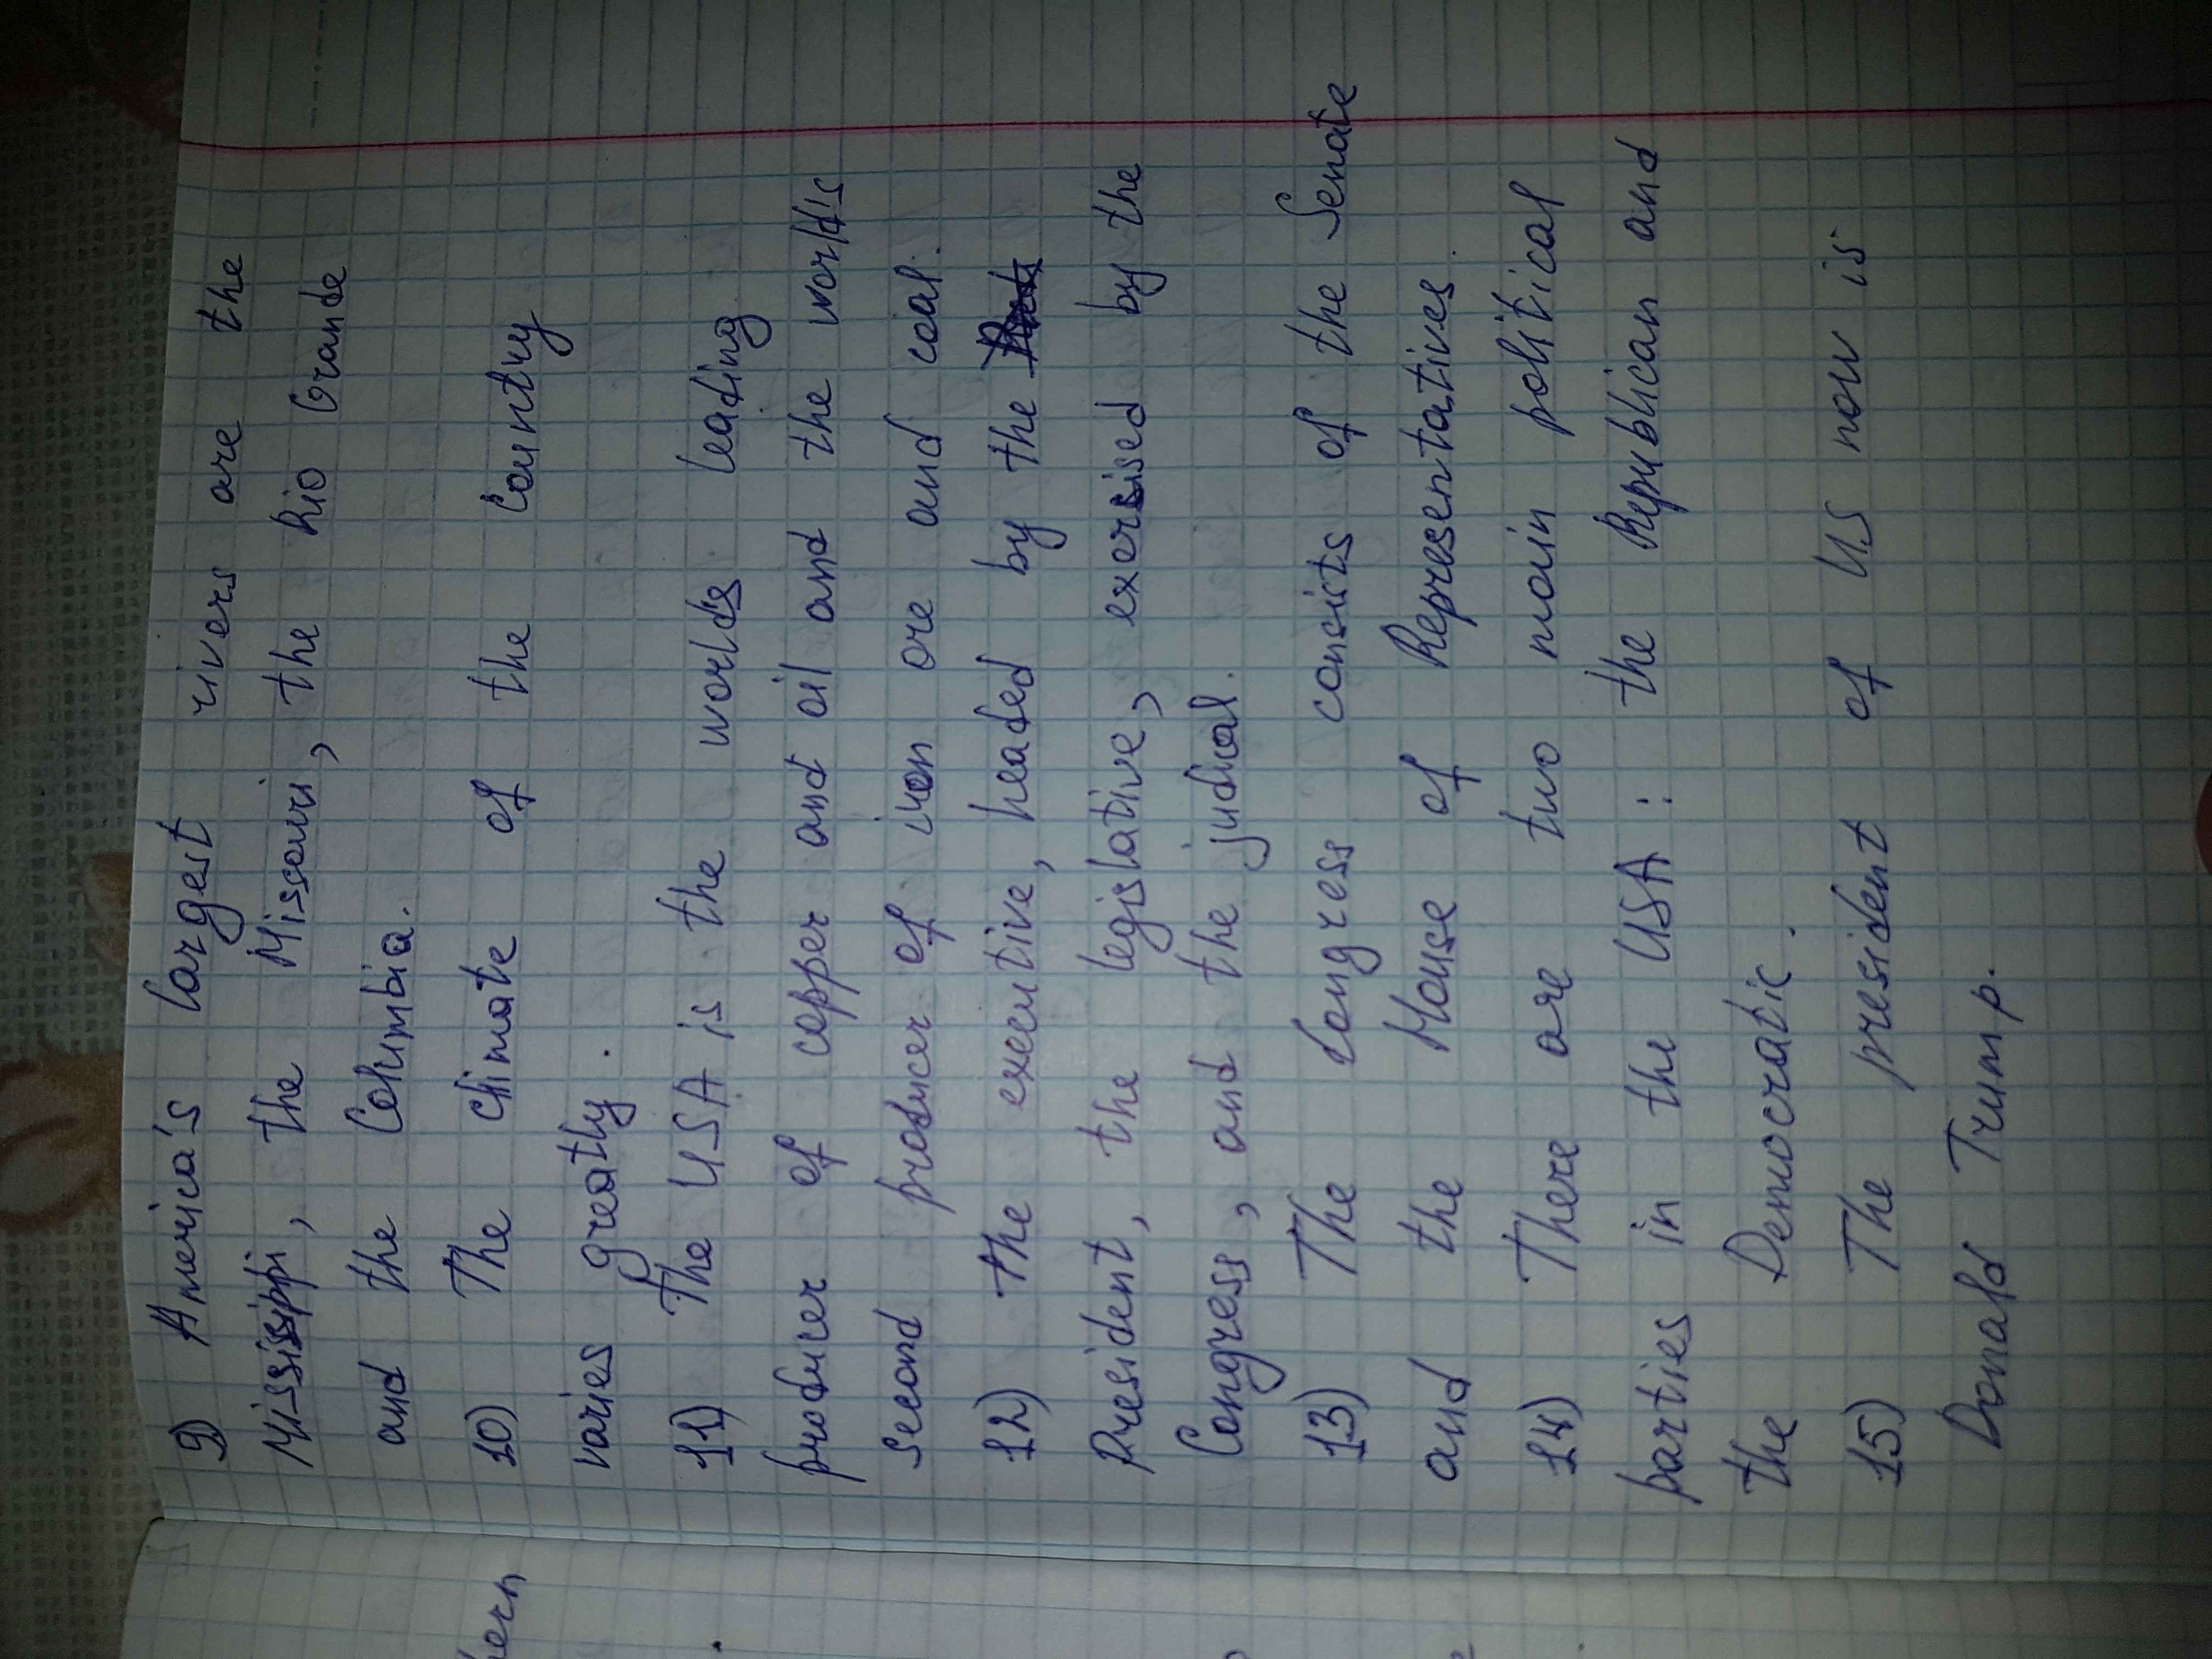 9) America's largest rivers are the
Mississippi, the Missouri, the Rio Grande
and the Columbia.
10) The climate of the country
varies greatly.
11) The USA is the world's leading
producer of copper and oil and the world's
second producer of iron ore and coal.
12) the executive, headed by the
President, the legislative, exersised by the
Congress, and the judical.
13) The Congress consists of the Senate
and the House of Representatives.
14) There are two main political
parties in the USA: the Republican and
the Democratic.
15) The president of US now is
Donald Trump.
hern